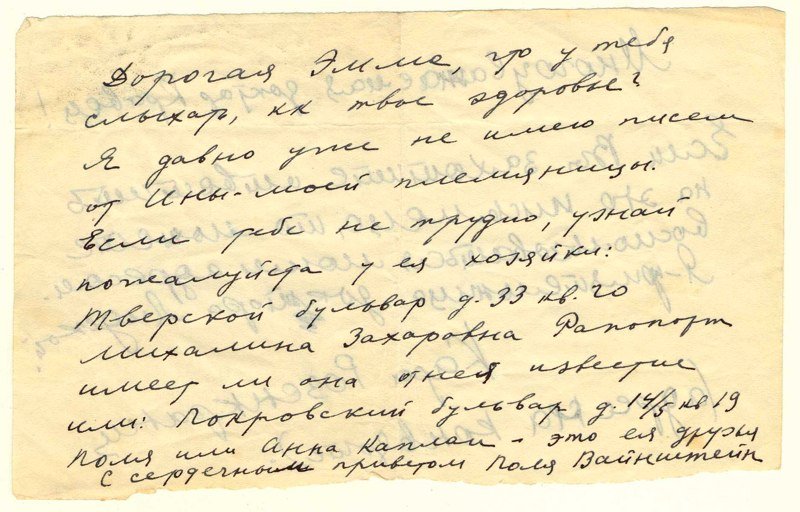 Дорогая Эмме, что у тебя
слыхать, кк твое здоровье?
Я давно уже не имею писем
от Ины-моей племянницы.
Если тебе не трудно, узнай
пожалуйста у ея хозяйки:
Тверской бульвар д. 33 кв. 70
Михалина Захаровна Рапопорт
имеет ли она от ней известие
или: Покровский бульвар д. 14/5 кв 19
Поля или Анна Каплан - это ея друзья
С сердечным приветом Поля Вайнштейн